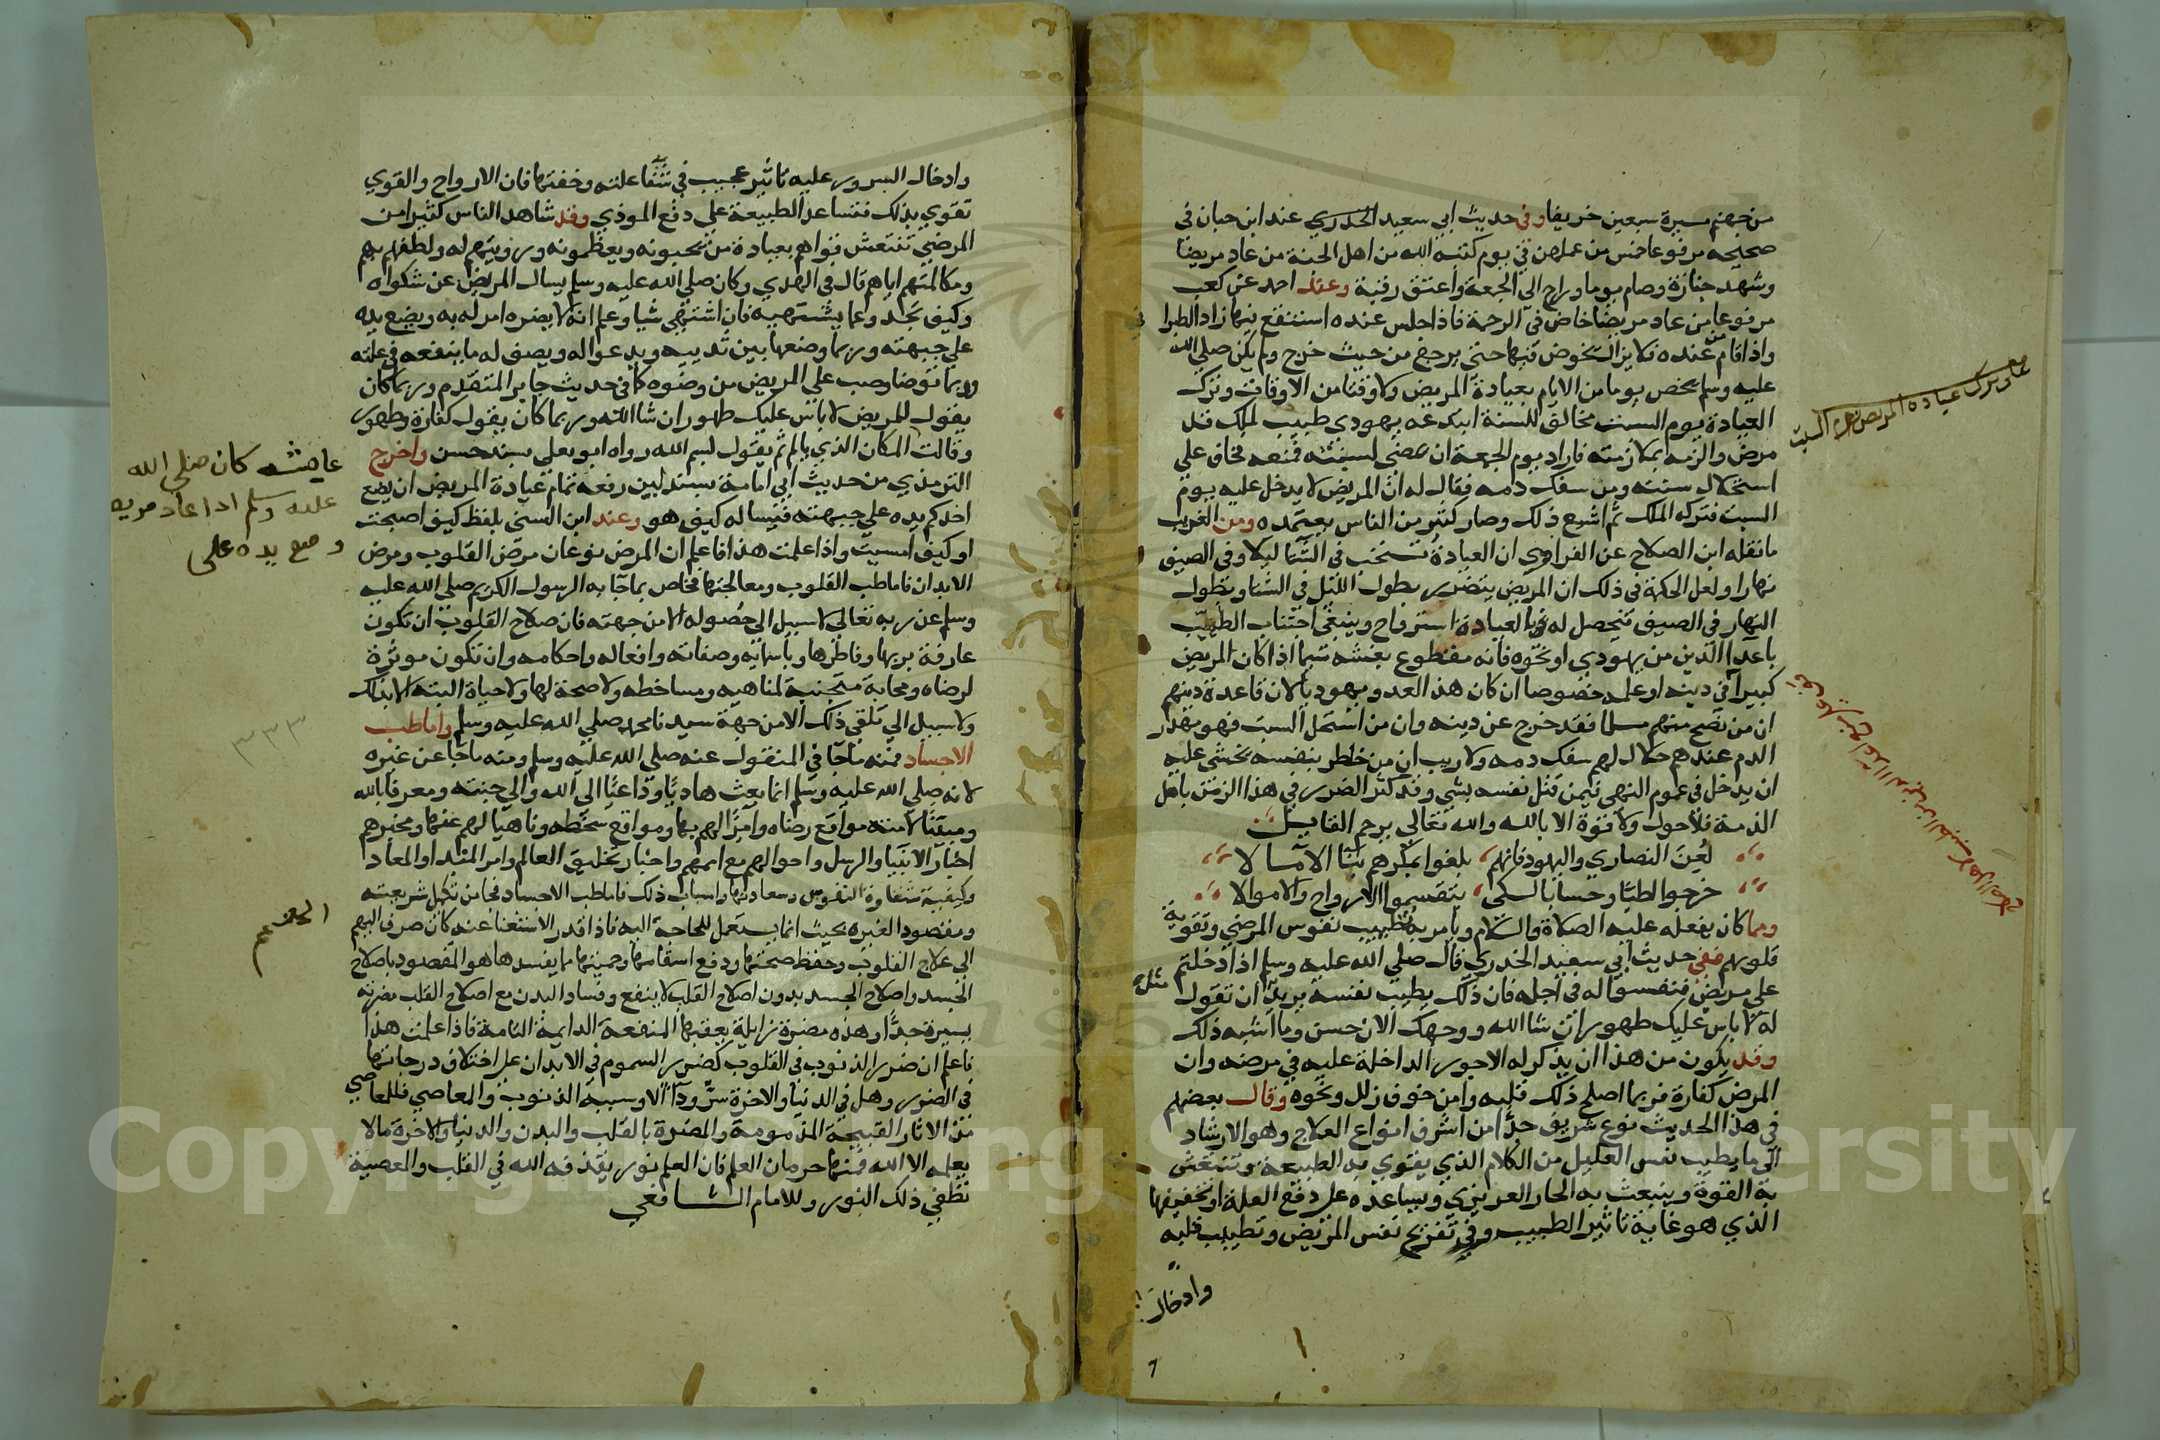 من جهنم مسيرة سبعين خريفا وفي حديث ابي سعيد الخدري عند ابن حبان في
صحيحه مرفوعا خمس من عملهن في يوم كتبه الله من اهل الجنة من عاد مريضا
وشهد جنازة وصام يوما وراح الى الجمعة واعتق رقبة وعند احمد عن كعب
مرفوعا من عاد مريضا خاض في الرحمة فاذا جلس عنده استنقع فيها زاد الطبرا
واذا قام من عنده فلا يزال يخوض فيها حتى يرجع من حيث خرج ولم يكن صلى الله
عليه وسلم يخص يوما من الايام بعيادة المريض ولا وقتا من الاوقات وترك
العيادة يوم السبت مخالف للسنة ابتدعه يهودي طبيب لملك قد
مرض والزمه بملازمته فاراد يوم الجمعة ان يمضي لسبته فمنعه فخاف على
استحلال سبته ومن سفك دمه فقال له ان المريض لا يدخل عليه يوم
السبت فتركه الملك ثم اشيع ذلك وصار كثير من الناس يعتمده ومن الغريب
ما نقله ابن الصلاح عن الفراوي ان العيادة تستحب في الشتا ليلا وفي الصيف
نهارا ولعل الحكمة في ذلك ان المريض يتضرر بطول الليل في الشتا وبطول
النهار في الصيف فيحصل له بالعيادة استرواح وينبغي اجتناب الطبيب
باعدا الدين من يهودي او نحوه فانه مقطوع بغشه سيما اذا كان المريض
كبيرا في دينه او علمه خصوصا ان كان هذا العدو يهوديا لان قاعدة دينهم
ان من نصح منهم مسلما فقد خرج عن دينه وان من استحل السبت فهو مهدر
الدم عندهم حلال لهم سفك دمه ولا ريب ان من خاطر بنفسه يخشى عليه
ان يدخل في عموم النهي فيمن قتل نفسه بشي وقد كثر الضرر في هذا الزمن باهل
الذمة فلا حول ولا قوة الا بالله والله تعالى يرحم القايل
لعن النصارى واليهود فانهم بلغوا بمكرهم بنا الآمالا
خرجوا اطبا وحسابا لكى يتقسموا الارواح والاموالا
ومما كان يفعله عليه الصلاة والسلام ويامر به تطييب نفوس المرضى وتقوية
قلوبهم ففي حديث ابي سعيد الخدري قال صلى الله عليه وسلم اذا دخلتم
على مريض فنفسوا له في اجله فان ذلك يطيب نفسه يريد ان تقول
له لا باس عليك طهور ان شا الله ووجهك الان حسن وما اشبه ذلك
وقد يكون من هذا ان يذكر له الاجور الداخلة عليه في مرضه وان
المرض كفارة فربما اصلح ذلك قلبه وامن خوف زلل ونحوه وقال بعضهم
في هذا الحديث نوع شريف جدا من اشرف انواع العلاج وهو الارشاد
الى ما يطيب نفس العليل من الكلام الذي يقوي به الطبيعة وتنتعش
به القوة وينبعث به الحار الغريزي ويساعده على دفع العلة او تخفيفها
الذي هو غاية تاثير الطبيب وفي تفريح نفس المريض وتطييب قلبه
وادخال
وادخال السرور عليه تاثير عجيب في شفا علته وخفتها فان الارواح والقوى
تقوى بذلك فتساعد الطبيعة على دفع الموذي وقد شاهد الناس كثيرا من
المرضى تنتعش قواهم بعيادة من يحبونه ويعظمونه ورويتهم له ولطفهم بهم
ومكالمتهم اياهم قال في الهدي وكان صلى الله عليه وسلم يسال المريض عن شكواه
وكيف تجد وعما يشتهيه فان اشتهى شيا وعلم انه لا يضره امر له به ويضع يده
على جبهته وربما وضعها بين ثدييه ويدعوا له ويصف له ما ينفعه في علته
وربما توضا وصب على المريض من وضوه كما في حديث جابر المتقدم وربما كان
يقول للمريض لا باس عليك طهور ان شا الله وربما كان يقول كفارة وطهور
وقالت المكان الذي يالم ثم يقول بسم الله رواه ابو يعلى بسند حسن واخرج
الترمذي من حديث ابي امامة بسند لين رفعه تمام عيادة المريض ان يضع
احدكم يده على جبهته فيساله كيف هو وعند ابن السني بلفظ كيف اصبحت
او كيف امسيت واذا علمت هذا فاعلم ان المرض نوعان مرض القلوب ومرض
الابدان فاما طب القلوب ومعالجتها فخاص بما جا به الرسول الكريم صلى الله عليه
وسلم عن ربه تعالى لا سبيل الى حصوله الا من جهته فان صلاح القلوب ان تكون
عارفة بربها وفاطرها وباسمايه وصفاته وافعاله واحكامه وان تكون موثرة
لرضاه ومحابه متجنبة لمناهيه ومساخطه ولا صحة لها ولا حياة البته الا بذلك
ولا سبيل الى تلقي ذلك الا من جهة سيدنا محمد صلى الله عليه وسلم واما طب
الاجساد فمنه ما جا في المنقول عنه صلى الله عليه وسلم ومنه ما جا عن غيره
لانه صلى الله عليه وسلم انما بعث هاديا وداعيا الى الله والى جنته ومعرفا بالله
ومبينا لامته مواقع رضاه وامرا لهم بها ومواقع سخطه وناهيا لهم عنها ومخبرهم
اخبار الانبيا والرسل واحوالهم مع اممهم واخبار تخليق العالم وامر المبدا والمعاد
وكيفية شقاوة النفوس وسعادتها واسباب ذلك فاما طب الاجساد فجا من تكميل شريعته
ومقصود الغيره بحيث انما يستعمل للحاجة اليه فاذا قدر الاستغنا عنه كان صرف الهمم
الى علاج القلوب وحفظ صحتها ودفع اسقامها وحميتها مما يفسدها هو المقصود باصلاح
الجسد واصلاح الجسد بدون اصلاح القلب لا ينفع وفساد البدن مع اصلاح القلب مضرته
يسيرة جدا وهذه مضرة زايلة يعقبها المنفعة الدايمة التامة فاذا علمت هذا
فاعلم ان ضرر الذنوب في القلوب كضرر السموم في الابدان على اختلاف درجاتها
في الضرر وهل في الدنيا والاخرة شر ودآ الا وسببه الذنوب والمعاصي فللمعاصي
من الاثار القبيحة المذمومة والمضرة بالقلب والبدن والدنيا والاخرة ما لا
يعلمه الا الله فمنها حرمان العلم فان العلم نور يقذفه الله في القلب والمعصية
تطفي ذلك النور وللامام الشافعي
عايشه كان صلى الله
عليه وسلم اذا عاد مريض
وضع يده على
٣٣٣